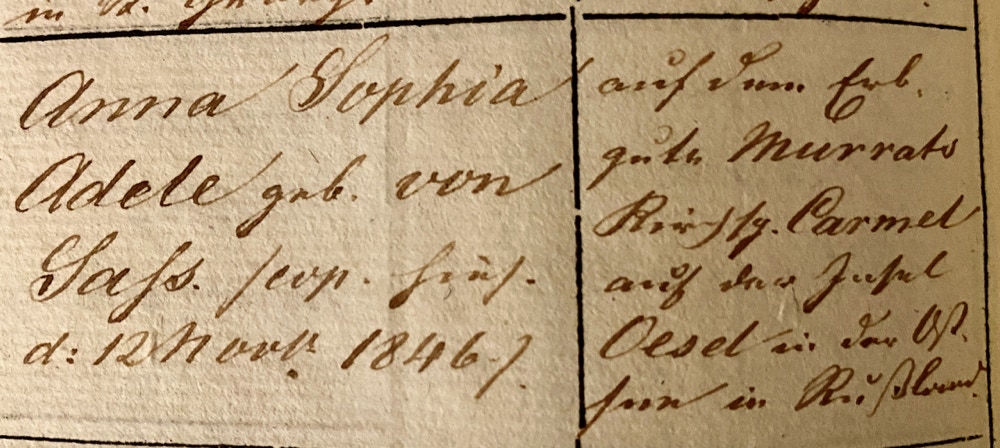 in d.
Anna Sophia
Adele geb. von
Sass. (cop. hies.
d: 12 Novbr. 1846.)
auf dem Erb-
gute Murrato
Kirchsp. Carmel
auf der Insel
Oesel in der Ost-
see in Rußland.